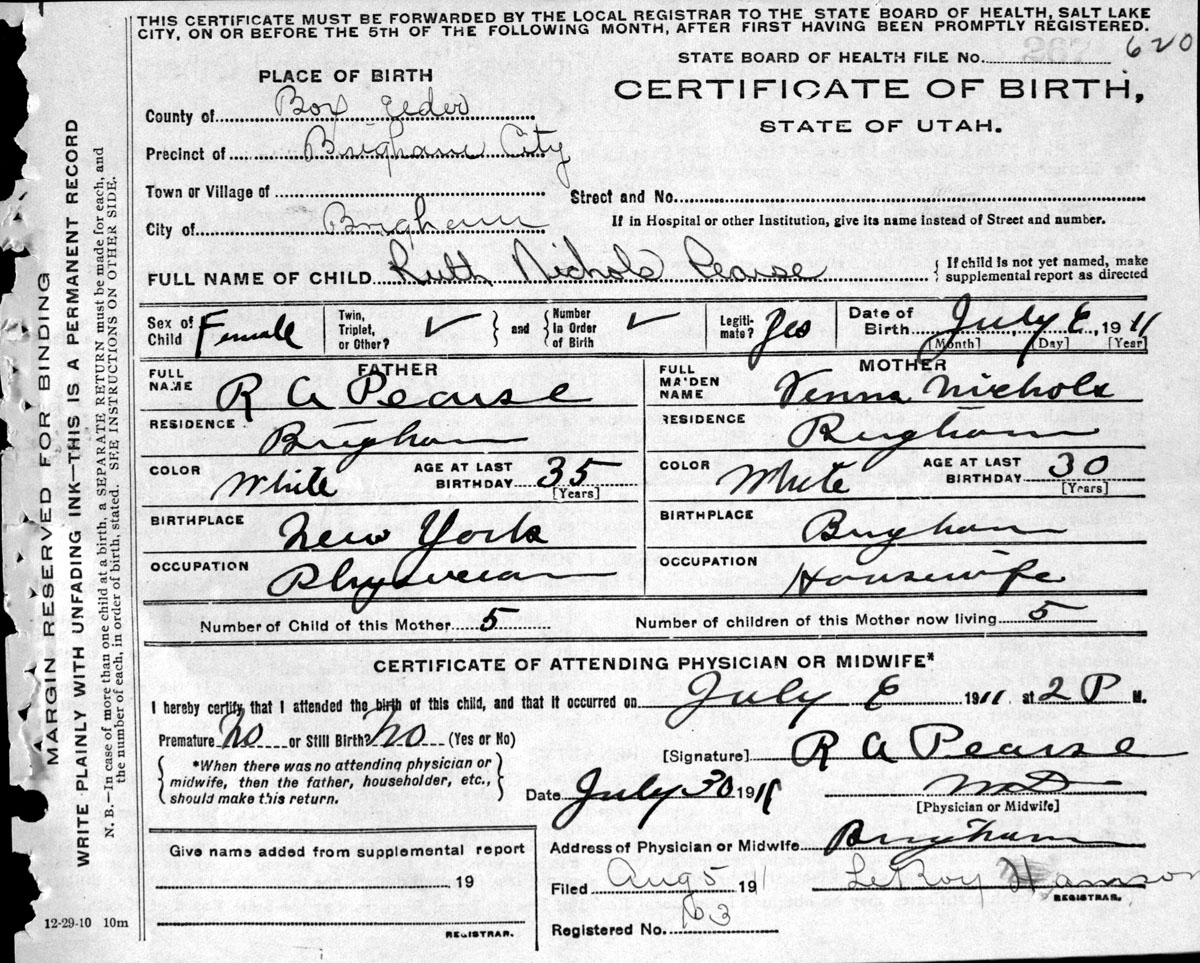 THIS CERTIFICATE MUST BE FORWARDED BY THE LOCAL REGISTRAR TO THE STATE BOARD OF HEALTH, SALT LAKE
CITY, ON OR BEFORE THE 5TH OF THE FOLLOWING MONTH, AFTER FIRST HAVING BEEN PROMPTLY REGISTERED.
STATE BOARD OF HEALTH FILE No. 620
PLACE OF BIRTH
CERTIFICATE OF BIRTH,
STATE OF UTAH.
County of Box Elder
Precinct of Brigham City
Town or Village of
Street and No.
City of Brigham
If in Hospital or other Institution, give its name instead of Street and number.
FULL NAME OF CHILD Ruth Nichols Pearse
{ If child is not yet named, make
supplemental report as directed
Sex of Child Female
Twin, Triplet, or Other? ✓ } and { Number in Order of Birth ✓
Legitimate? Yes
Date of Birth July 6 1911
[Month] [Day] [Year]
FATHER
FULL NAME R A Pearse
RESIDENCE Brigham
COLOR White
AGE AT LAST BIRTHDAY 35
[Years]
BIRTHPLACE New York
OCCUPATION Physician
MOTHER
FULL MAIDEN NAME Venna Nichols
RESIDENCE Brigham
COLOR White
AGE AT LAST BIRTHDAY 30
[Years]
BIRTHPLACE Brigham
OCCUPATION Housewife
Number of Child of this Mother 5
Number of children of this Mother now living 5
CERTIFICATE OF ATTENDING PHYSICIAN OR MIDWIFE*
I hereby certify that I attended the birth of this child, and that it occurred on July 6 1911 at 2 P M.
Premature No or Still Birth? No (Yes or No)
{ *When there was no attending physician or
midwife, then the father, householder, etc.,
should make this return. }
[Signature] R A Pearse
M D
[Physician or Midwife]
Date July 30 1911
Address of Physician or Midwife Brigham
Give name added from supplemental report
19
REGISTRAR.
Filed Aug 5 191
LeRoy Hamson
REGISTRAR.
Registered No. 63
12-29-10 10m
MARGIN RESERVED FOR BINDING
WRITE PLAINLY WITH UNFADING INK—THIS IS A PERMANENT RECORD
N. B.—In case of more than one child at a birth, a SEPARATE RETURN must be made for each, and
the number of each, in order of birth, stated. SEE INSTRUCTIONS ON OTHER SIDE.